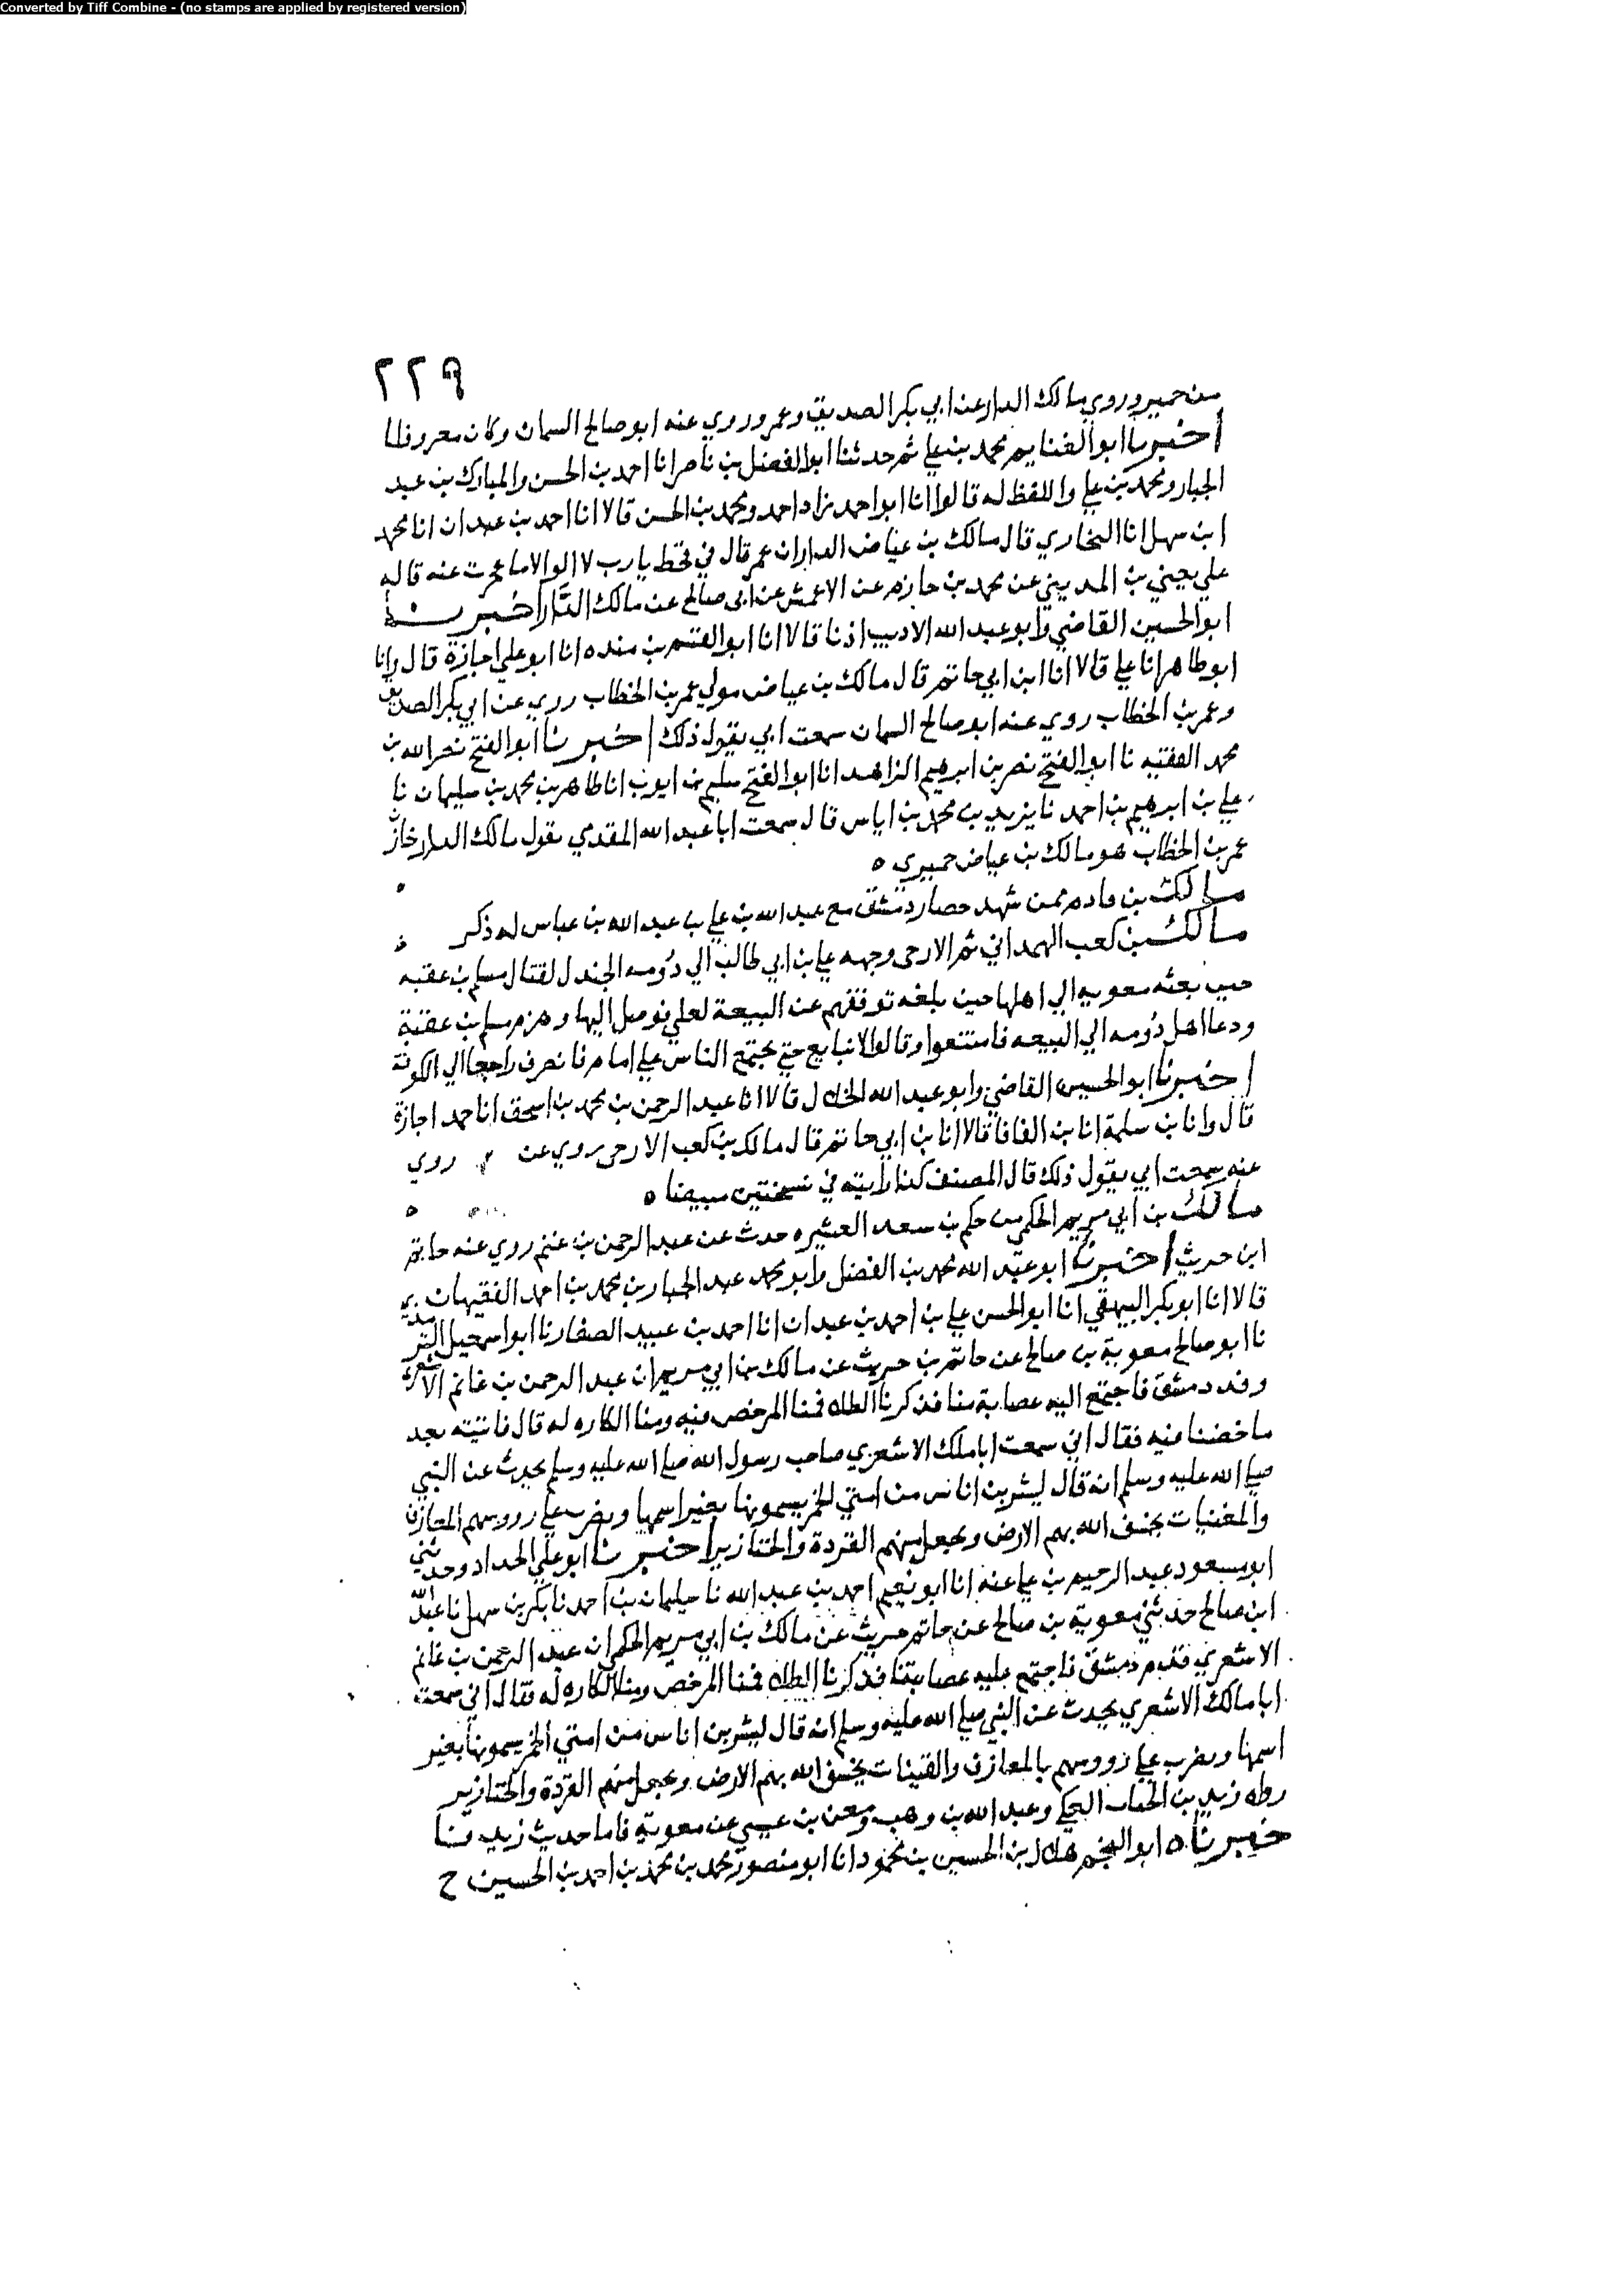 Converted by Tiff Combine - (no stamps are applied by registered version)
٢٢٩
من حمير وروي مالك الدار عن ابي بكر الصديق وعمر وروي عنه ابو صالح السمان وكان معروفا
أخبرنا ابو الغنايم محمد بن علي ثم حدثنا ابو الفضل بن ناصر انا احمد بن الحسن والمبارك بن عبد
الجبار ومحمد بن علي واللفظ له قالوا انا ابو احمد زاد احمد ومحمد بن الحسن قالا انا احمد بن عبدان انا محمد
ابن سهل انا البخاري قال مالك بن عياض الدار ان عمر قال في قحط يا رب لا الو الا ما عجزت عنه قاله
علي يعني بن المديني عن محمد بن خازم عن الاعمش عن ابي صالح عن مالك الدار اخبرنا
ابو الحسين القاضي وابو عبد الله الاديب اذنا قالا انا ابو القسم بن منده انا ابو علي اجازة قال وانا
ابو طاهر انا علي قالا انا ابن ابي حاتم قال مالك بن عياض مولي عمر بن الخطاب روي عن ابي بكر الصديق
وعمر بن الخطاب روي عنه ابو صالح السمان سمعت ابي يقول ذلك اخبرنا ابو الفتح نصر الله بن
محمد الفقيه نا ابو الفتح نصر بن ابرهيم الزاهد انا ابو الفتح سليم بن ايوب انا طاهر بن محمد بن سليمان نا
علي بن ابرهيم بن احمد نا يزيد بن محمد بن اياس قال سمعت ابا عبد الله المقدمي يقول مالك الدار خازن
عمر بن الخطاب هو مالك بن عياض حميري ه
مالك بن ممن شهد حصار دمشق مع عبد الله بن علي بن عبد الله بن عباس له ذكر
مالك بن كعب الهمداني ثم الارحبي وجهه علي بن ابي طالب الي دومه الجندل لقتال مسلم بن عقبه
حين بعثه معويه الي اهلها حين بلغه توقفهم عن البيعة لعلي فوصل اليها وهزم مسلم بن عقبة
ودعا اهل دومه الي البيعه فامتنعوا وقالوا لا نبايع حتي يجتمع الناس علي امام فانصرف راجعا الي الكوفة
اخبرنا ابو الحسين القاضي وابو عبد الله الخلال قالا انا عبد الرحمن بن محمد بن اسحق انا حمد اجازة
قال وانا بن سلمة انا بن الفافا قالا انا بن ابي حاتم قال مالك بن كعب الارحبي روي عن روي
عنه سمعت ابي يقول ذلك قال المصنف كذا رايته في نسختين مبيضا ه
مالك بن ابي مريم الحكمي من حكم بن سعد العشيره حدث عن عبد الرحمن بن غنم روي عنه حاتم
ابن حريث اخبرنا ابو عبد الله محمد بن الفضل وابو محمد عبد الجبار بن محمد بن احمد الفقيهان
قالا انا ابو بكر البيهقي انا ابو الحسن علي بن احمد بن عبدان انا احمد بن عبيد الصفار نا ابو اسمعيل الترمذي
نا ابو صالح معوية بن صالح عن حاتم بن حريث عن مالك بن ابي مريم ان عبد الرحمن بن غانم الاشعري
وفد دمشق فاجتمع اليه عصابة منا فذكرنا الطلا فمنا المرخص فيه ومنا الكاره له قال فاتيته بعد
ما خضنا فيه فقال اني سمعت ابا ملك الاشعري صاحب رسول الله صلي الله عليه وسلم يحدث عن النبي
صلي الله عليه وسلم انه قال ليشربن اناس من امتي الخمر يسمونها بغير اسمها ويضرب علي رووسهم المعازف
والمغنيات يخسف الله بهم الارض ويجعل منهم القردة والخنازير اخبرنا ابو علي الحداد وحدثني
ابو مسعود عبد الرحيم بن علي عنه انا ابو نعيم احمد بن عبد الله نا سليمان بن احمد نا بكر بن سهل نا عبد الله
ابن صالح حدثني معوية بن صالح عن حاتم حريث عن مالك بن ابي مريم الحكمي ان عبد الرحمن بن غانم
الاشعري قدم دمشق فاجتمع عليه عصابتنا فذكرنا الطلا فمنا المرخص ومنا الكاره له فقال اني سمعت
ابا مالك الاشعري يحدث عن النبي صلي الله عليه وسلم انه قال ليشربن اناس من امتي الخمر يسمونها بغير
اسمها ويضرب علي رووسهم بالمعازف والقينات يخسف الله بهم الارض ويجعل منهم القردة والخنازير
رواه زيد بن الحباب العكلي وعبد الله بن وهب ومعن بن عيسي عن معوية فاما حديث زيد فا
خبرناه ابو النجم هلال بن الحسين بن محمود انا ابو منصور محمد بن محمد بن احمد بن الحسين ح